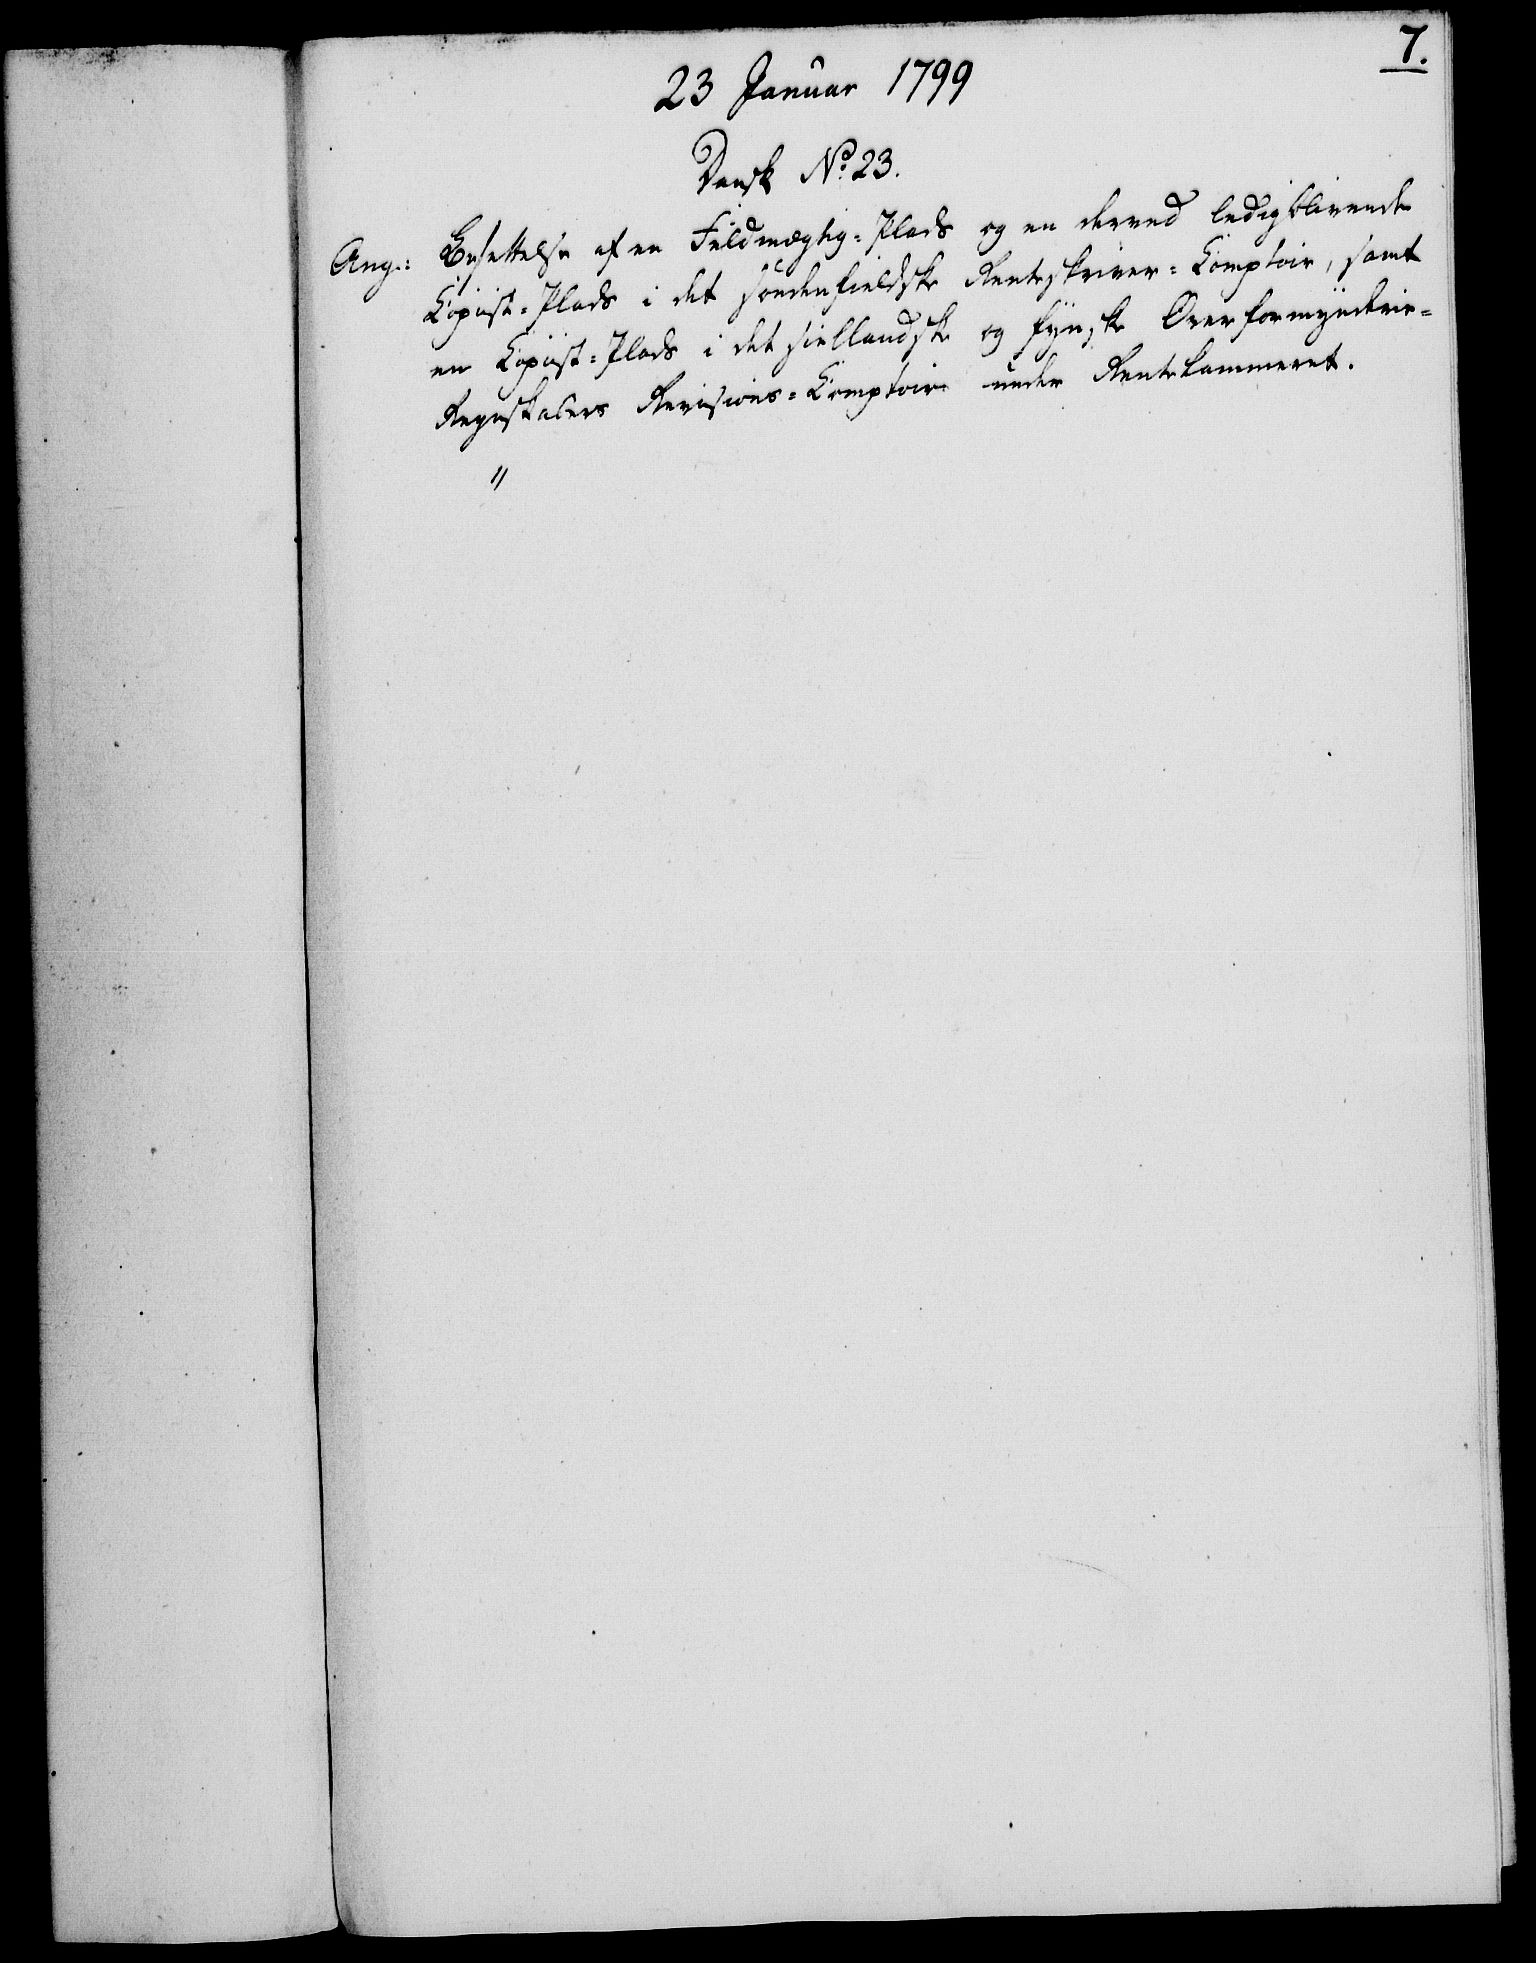 7.
23 Januar 1799
Dansk No. 23.
Ang: Besettelse af en Fuldmægtig=Plads og en derved ledigblivende
Copiist=Plads i det söndenfieldske Renteskriver=Comptoir, samt
en Copiist=Plads i det siellandske og fynske Overformynderie=
Regnskabers Revisions=Comptoir under Rentekammeret.
"